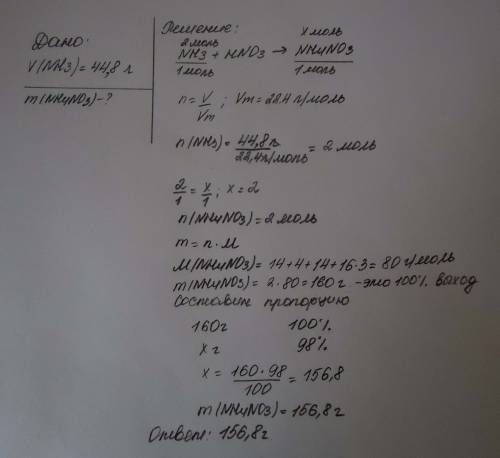 Дано:
V(NH3)=44,8 л
m(NH4NO3)-?
Решение:
2моль х моль
NH3 + HNO3 → NH4NO3
1моль 1моль
n=V/Vm ; Vm=22,4 л/моль
n(NH3)=44,8л/22,4л/моль = 2 моль
2/1 = x/1 ; x=2
n(NH4NO3)=2 моль
m = n·M
M(NH4NO3)=14+4+14+16·3=80 г/моль
m(NH4NO3)=2·80=160 г -это 100% выход
Составим пропорцию
160г 100%
х г 98%
x = 160·98/100 = 156,8
m(NH4NO3)=156,8 г
Ответ: 156,8 г